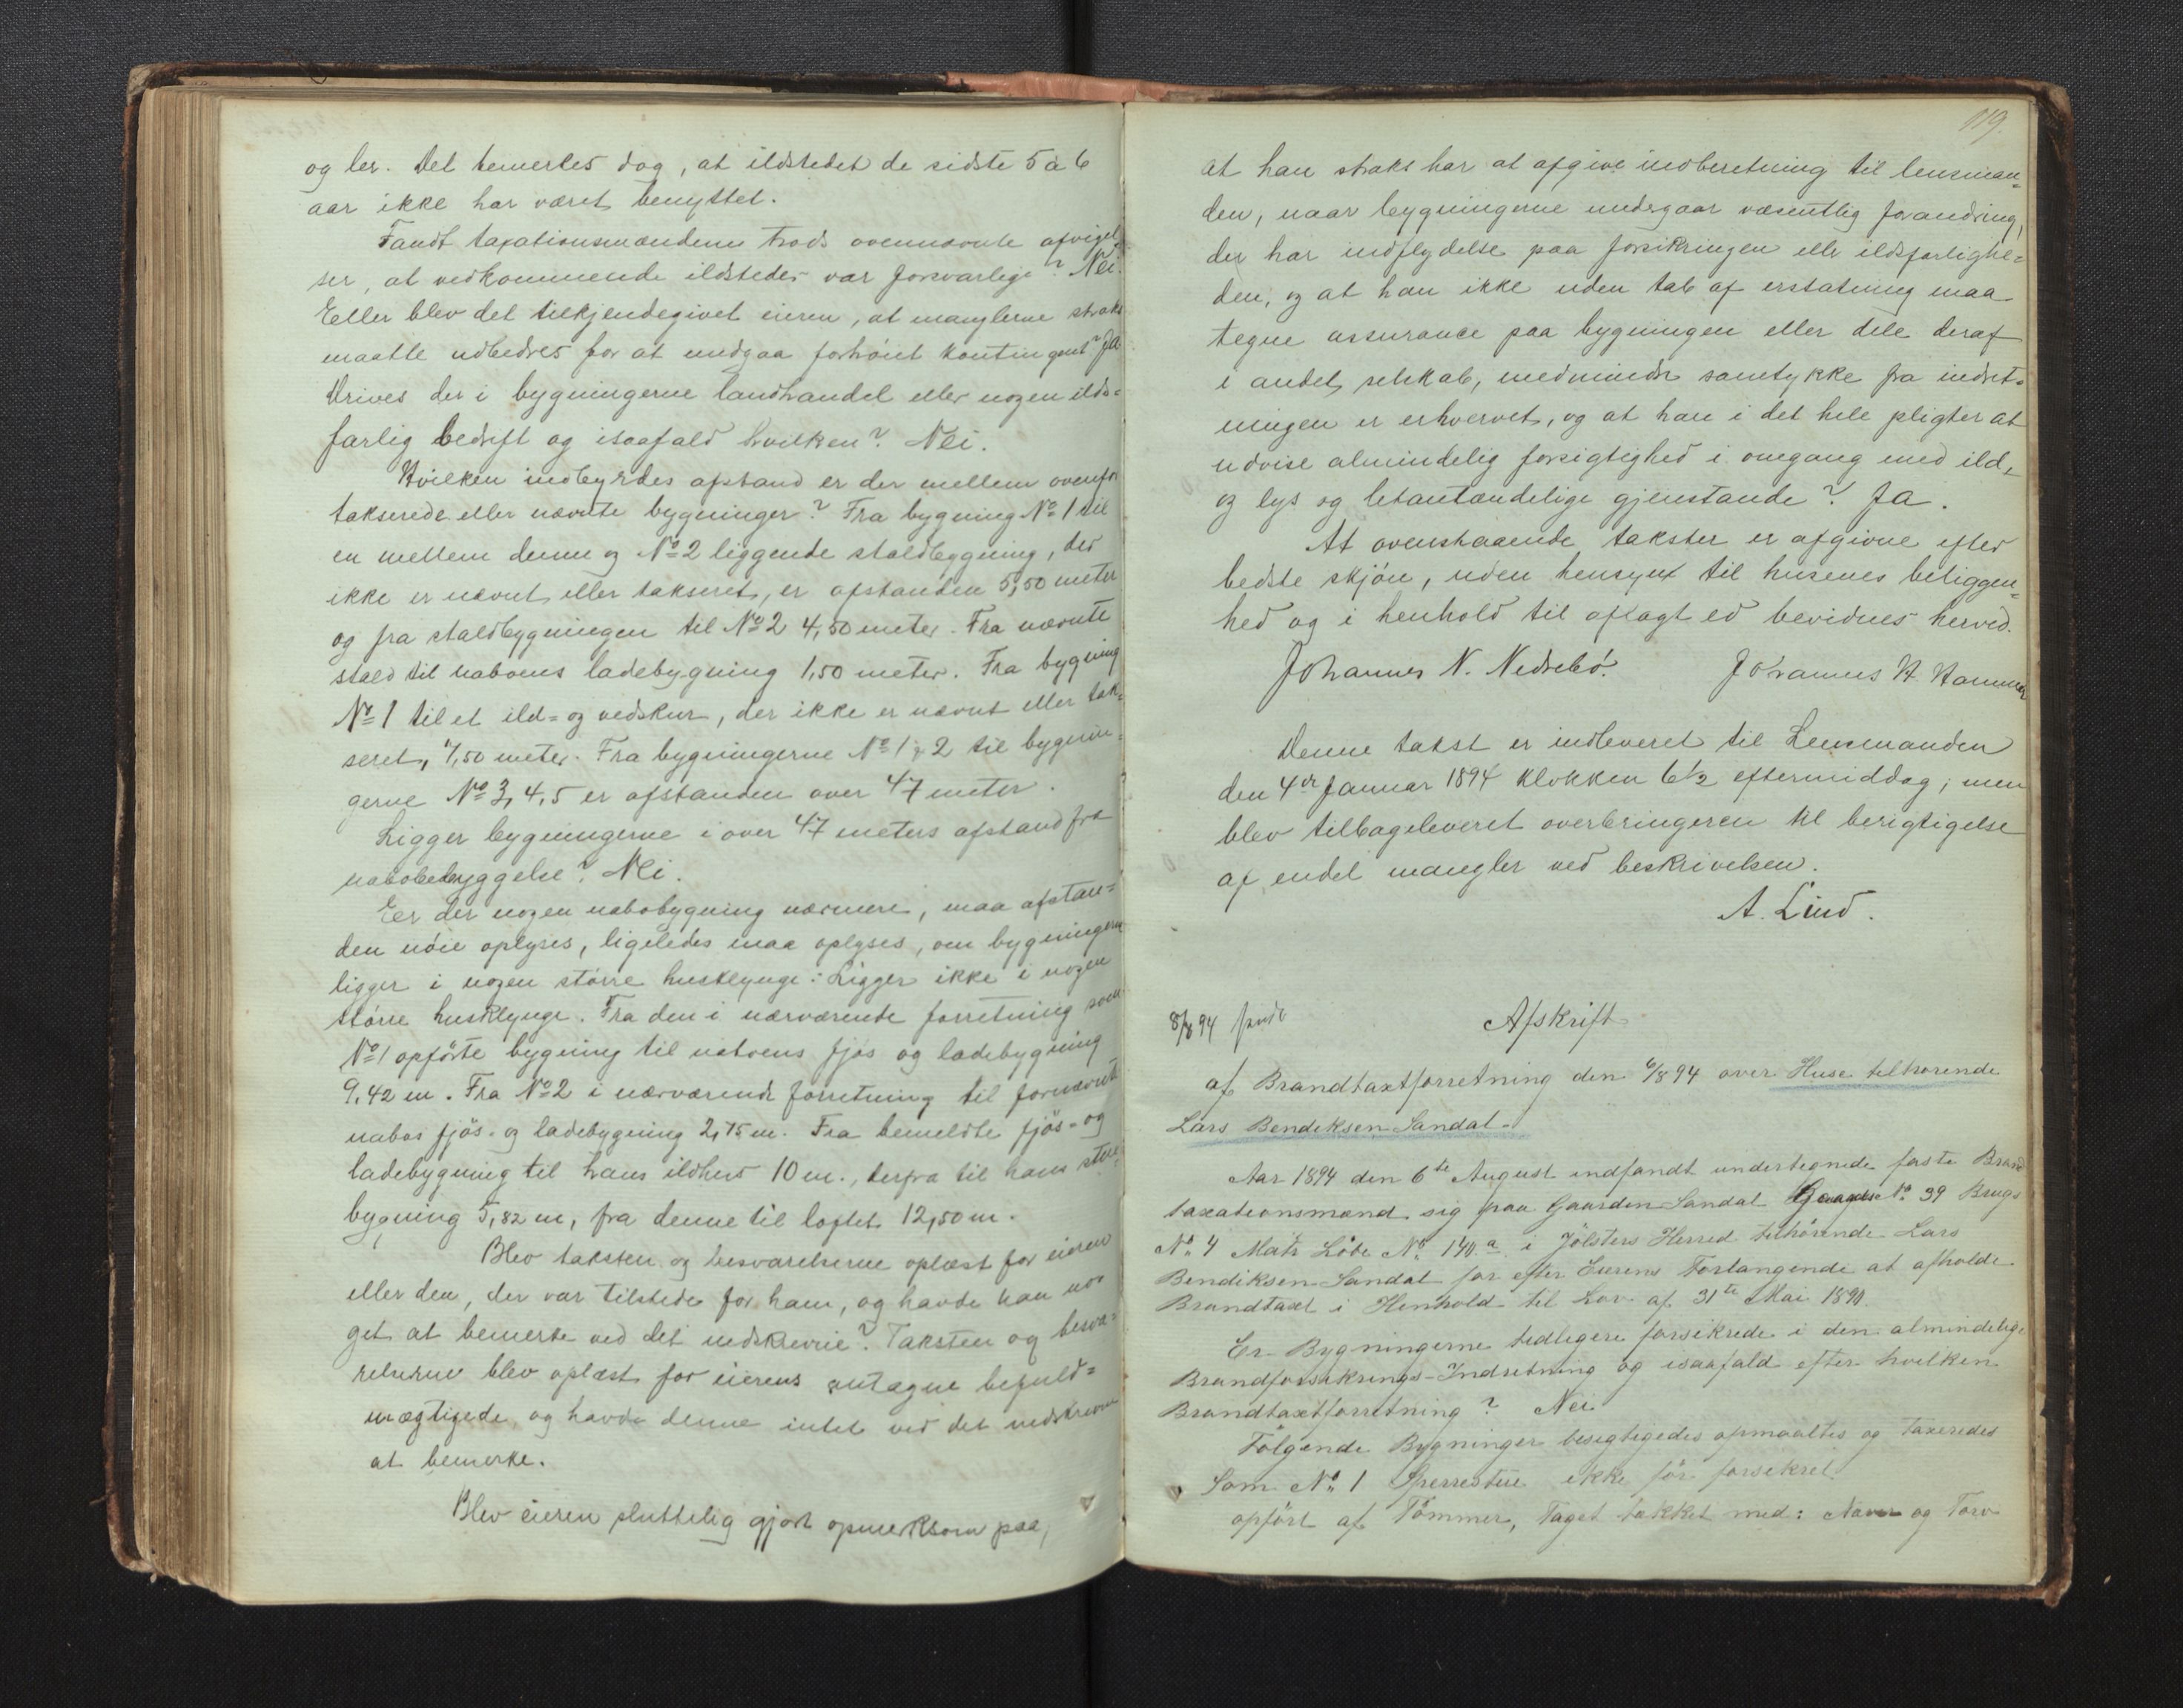 og ler. Det bemerkes dog, at ildstedet de sidste 5 à 6
aar ikke har været benyttet.
Fandt taxationsmændene trods ovennævnte afvigel
ser, at vedkommende ildsteder var forsvarlige? Nei.
Eeller blev det tilkjendegivet eieren, at manglerne straks
maatte udbedres for at undgaa forhöiet kontingent? Ja
Drives der i bygningerne landhandel eller nogen ilds=
farlig bedrift og isaafald hvilken? Nei.
Hvilken indbyrdes afstand er der mellem ovenfor
takserede eller nævnte bygninger? Fra bygning No 1 til
en mellem denne og No 2 liggende staldbygning, der
ikke er nævnt eller takseret, er afstanden 5,50 meter
og fra staldbygningen til No 2 4,50 meter. Fra nævnte
stald til naboens ladebygning 1,50 meter. Fra bygning
No 1 til et ild= og vedskur, der ikke er nævnt eller tak=
seret, 4,50 meter. Fra bygningerne No 1 & 2 til bygnin=
gerne No 3, 4, 5 er afstanden over 47 meter.
Ligger bygningerne i over 47 meters afstand fra
nabobebyggelse? Nei.
Eer der nogen nabobygning nærmere, maa afstan=
den nöie oplyses, ligeledes maa oplyses, om bygningerne
ligger i nogen större husklynge: Ligger ikke i nogen
större husklynge. Fra den i nærværende forretning som
No 1 opförte bygning til naboens fjös og ladebygning
9,42 m. Fra No 2 i nærværende forretning til fornævnte
nabos fjös- og ladebygning 2,75 m. Fra bemeldte fjös= og
ladebygning til hans ildhus 10 m., derfra til hans stue=
bygning 5,82 m, fra denne til loftet 12,50 m.
Blev taksten og besvarelserne oplæst for eieren
eller den, der var tilstede for ham, og havde han no=
get at bemerke ved det nedskrevne? Taksten og besva=
relserne blev oplæst for eierens antagne befuld=
mægtigede og havde denne intet ved det nedskrevne
at bemerke.
Blev eieren sluttelig gjort opmerksom paa,
119.
at han straks har at afgive indberetning til lensman=
den, naar bygningerne undergaar væsentlig forandring,
der har indflydelse paa forsikringen eller ildsfarlighe=
den, og at han ikke uden tab af erstatning maa
tegne assurance paa bygningen eller dele deraf
i andet selskab, medmindre samtykke fra indret=
ningen er erhvervet, og at han i det hele pligter at
udvise almindelig forsigtighed i omgang med ild,
og lys og letantændelige gjenstande? Ja.
At ovenstaaende takster er afgivne efter
bedste skjön, uden hensyn til husenes beliggen=
hed og i henhold til aflagt ed bevidnes herved.
Johannes N. Nedrebö. Johannes H. Hammer
Denne takst er indleveret til Lensmanden
den 4de Januar 1894 klokken 6½ eftermiddag; men
blev tilbageleveret overbringeren til berigtigelse
af endel mangler ved beskrivelsen.
A. Lind.
8/8 94 sendt
Afskrift
af Brandtaxtforretning den 6/8 94 over Huse tilhørende
Lars Bendiksen Sandal.
Aar 1894 den 6te August indfandt undertegnede faste Brand
taxationsmænd sig paa Gaarden Sandal Gaards No. 39 Brugs
No. 4 Matr Löbe No. 140.a i Jölsters Herred tilhörende Lars
Bendiksen Sandal for efter Eierens Forlangende at afholde
Brandtaxt i Henhold til Lov af 31te Mai 1890.
Er Bygningerne tidligere forsikrede i den almindelige
Brandforsikrings-Indretning og isaafald efter hvilken
Brandtaxtforretning? Nei
Fölgende Bygninger besigtigedes opmaaltes og taxeredes
Som No. 1 Sperrestue ikke för forsikret
opfört af Tömmer, Taget tækket med: Næver og Torv